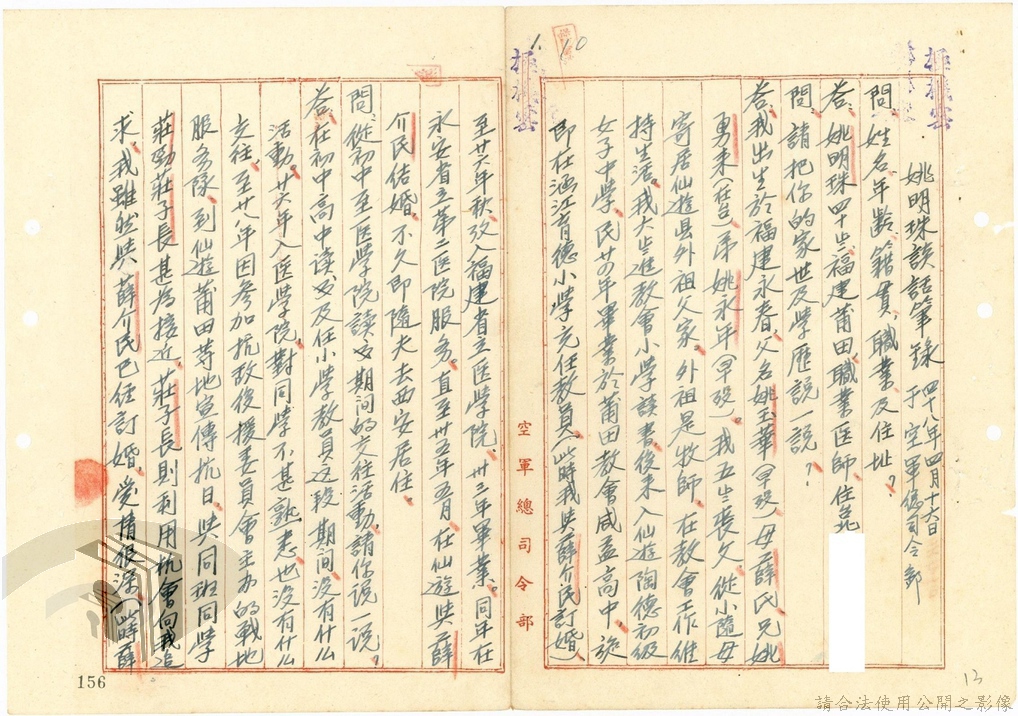 極機密
極機密
1.10
姚明珠談話筆錄 四十八年四月十六日 于空軍總司令部
問、姓名、年齡、籍貫、職業及住址?
答、姚明珠四十二歲、福建莆田、職業医師、住台北
問、請把你的家世及學歷說一說?
答、我出生於福建永春、父名姚玉華(早歿)母薛氏、兄姚
勇來(在台)、弟姚永年(早歿)。我五歲喪父、從小隨母
寄居仙遊县外祖父家。外祖是牧師、在教會工作維
持生活。我六歲進教會小學讀書後來入仙遊陶德初級
女子中學、民廿四年畢業於莆田教會咸益高中、旋
即在涵江育德小學充任教員、(此時我與薛介民訂婚)、
空軍總司令部
至廿六年秋、攷入福建省立医學院、卅三年畢業、同年在
永安省立第二医院服务、直至卅五年五月在仙遊與薛
介民結婚、不久即隨夫去西安居住。
問、從初中至医學院讀书期间的交往活動、請你說一說?
答、在初中高中读书及任小學教員这段期间、没有什么
活動。廿六年入医學院、對同學不甚熟悉、也没有什么
交往、至廿八年因參加抗敌後援委員會主办的戰地
服务隊、到仙遊莆田等地宣傳抗日、與同班同學
莊勁莊子長甚為接近、莊子長則利用机會向我追
求、我雖然與薛介民已經訂婚、愛情很深、(此時薛
156
13
請合法使用公開之影像